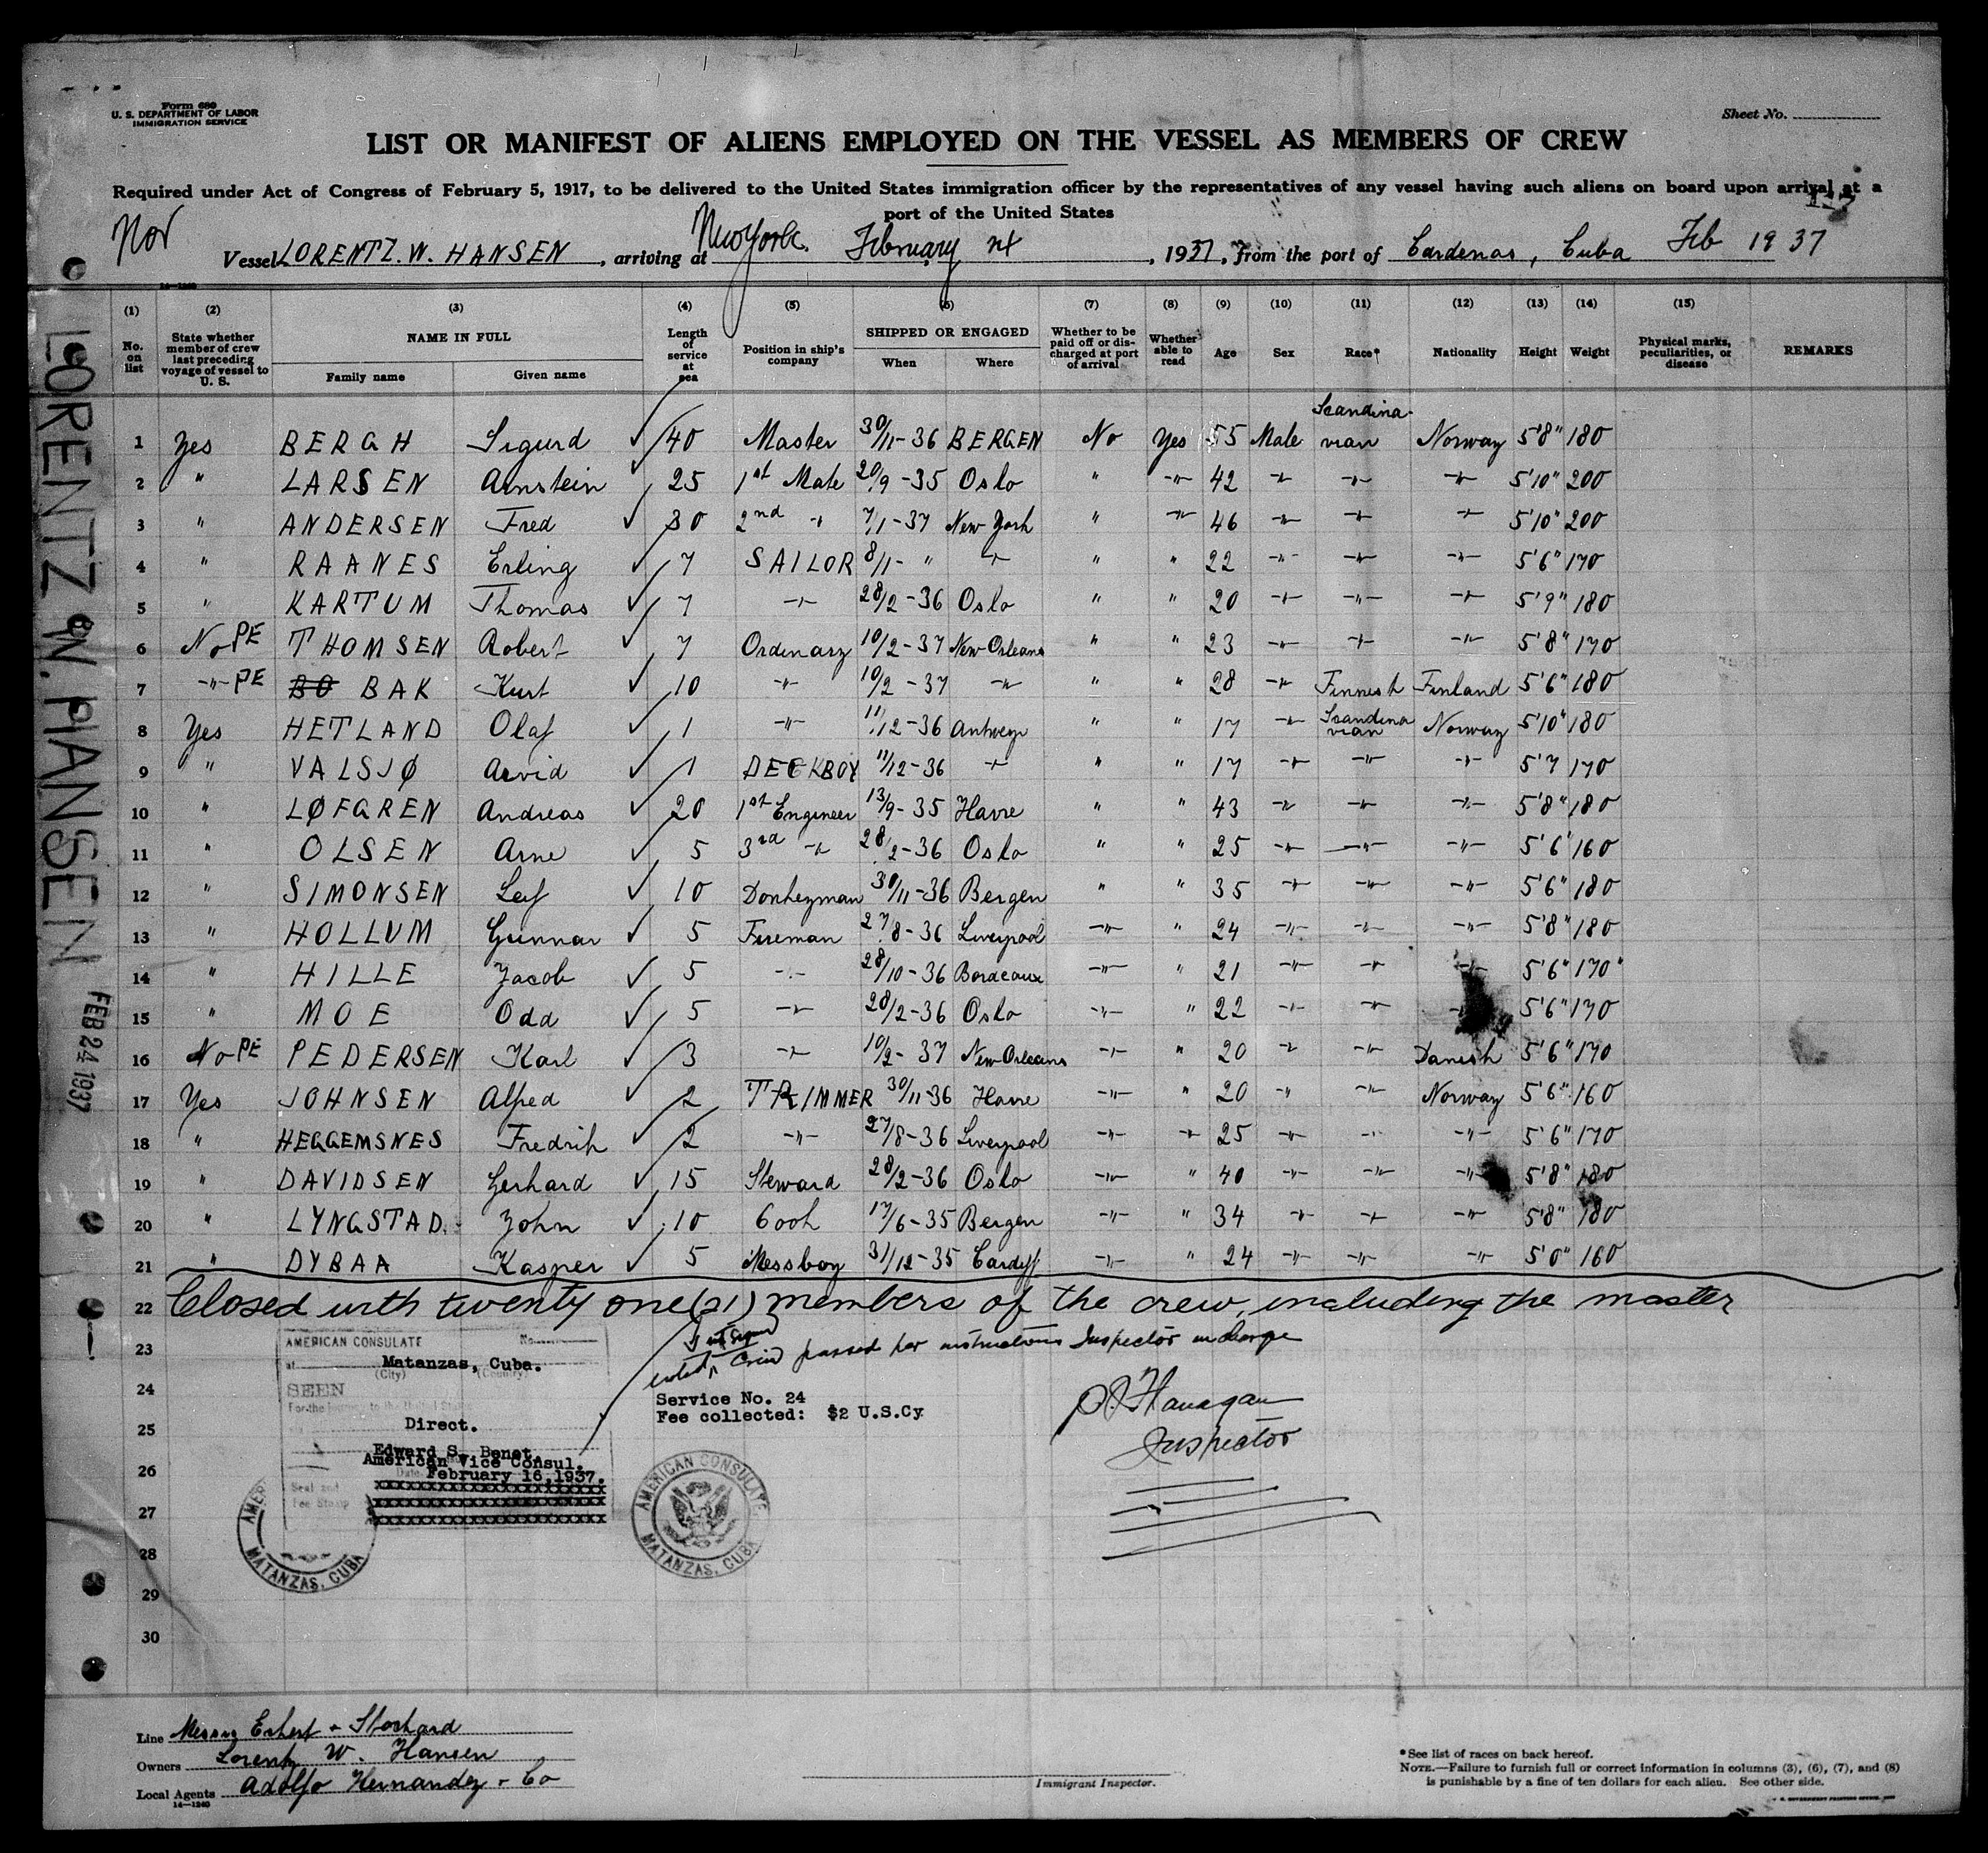 Form 680
U. S. DEPARTMENT OF LABOR
IMMIGRATION SERVICE
Sheet No.
LIST OR MANIFEST OF ALIENS EMPLOYED ON THE VESSEL AS MEMBERS OF CREW
Required under Act of Congress of February 5, 1917, to be delivered to the United States immigration officer by the representatives of any vessel having such aliens on board upon arrival at a
port of the United States
Nor
Vessel LORENTZ. W. HANSEN, arriving at New York. February 24, 1937, from the port of Cardenas, Cuba Feb 19 37
14—1240
(1) (2) (3) (4) (5) (6) (7) (8) (9) (10) (11) (12) (13) (14) (15)
No. on list State whether member of crew last preceding voyage of vessel to U. S. NAME IN FULL Family name Given name Length of service at sea Position in ship's company SHIPPED OR ENGAGED When Where Whether to be paid off or discharged at port of arrival Whether able to read Age Sex Race* Nationality Height Weight Physical marks, peculiarities, or disease REMARKS
1 Yes BERGH Sigurd 40 Master 30/11-36 BERGEN No Yes 55 Male Scandinavian Norway 5'8" 180
2 " LARSEN Arnstein 25 1st Mate 20/9-35 Oslo " -"- 42 -"- -"- -"- 5'10" 200
3 " ANDERSEN Fred 30 2nd -"- 7/1-37 New York " -"- 46 -"- -"- -"- 5'10" 200
4 " RAANES Erling 7 SAILOR 8/1- " -"- " " 22 -"- -"- -"- 5'6" 170
5 " KARTUM Thomas 7 -"- 28/2-36 Oslo " " 20 -"- -"- -"- 5'9" 180
6 No PE THOMSEN Robert 7 Ordinary 10/2-37 New Orleans " " 23 -"- -"- -"- 5'8" 170
7 -"- PE BO BAK Kurt 10 -"- 10/2-37 -"- " " 28 -"- Finnish Finland 5'6" 180
8 Yes HETLAND Olaf 1 -"- 11/12-36 Antwerp " " 17 -"- Scandinavian Norway 5'10" 180
9 " VALSJØ Arvid 1 DECKBOY 11/12-36 -"- " " 17 -"- -"- -"- 5'7 170
10 " LØFGREN Andreas 20 1st Engineer 13/9-35 Havre " " 43 -"- -"- -"- 5'8" 180
11 " OLSEN Arne 5 3rd -"- 28/2-36 Oslo " " 25 -"- -"- -"- 5'6" 160
12 " SIMONSEN Leif 10 Donkeyman 30/11-36 Bergen " " 35 -"- -"- -"- 5'6" 180
13 " HOLLUM Gunnar 5 Fireman 27/8-36 Liverpool -"- " 24 -"- -"- -"- 5'8" 180
14 " HILLE Jacob 5 -"- 28/10-36 Bordeaux -"- " 21 -"- -"- -"- 5'6" 170"
15 " MOE Odd 5 -"- 28/2-36 Oslo -"- " 22 -"- -"- -"- 5'6" 170
16 No PE PEDERSEN Karl 3 -"- 10/2-37 New Orleans -"- " 20 -"- -"- Danish 5'6" 170
17 Yes JOHNSEN Alfred 2 TRIMMER 30/11-36 Havre -"- " 20 -"- -"- Norway 5'6" 160
18 " HEGGEMSNES Fredrik 2 -"- 27/8-36 Liverpool -"- -"- 25 -"- -"- -"- 5'6" 170
19 " DAVIDSEN Gerhard 15 Steward 28/2-36 Oslo -"- " 40 -"- -"- -"- 5'8" 180
20 " LYNGSTAD. John 10 Cook 17/6-35 Bergen -"- " 34 -"- -"- -"- 5'8" 180
21 " DYBAA Kasper 5 Messboy 31/12-35 Cardiff -"- " 24 -"- -"- -"- 5'0" 160
22 Closed with twenty one (21) members of the crew, including the master
23 Crew passed per instructions Inspector in charge
24
25
26
27
28
29
30
AMERICAN CONSULATE No.
at Matanzas, Cuba.
(City) (Country)
SEEN
For the journey to the United States
Direct.
Edward S. Benet.
American Vice Consul.
Date February 16, 1937.
Seal and
Fee Stamp
AMERICAN CONSULATE
MATANZAS, CUBA
Service No. 24
Fee collected: $2 U.S.Cy
AMERICAN CONSULATE
MATANZAS, CUBA
Flanagan
Inspector
LORENTZ W. HANSEN FEB 24 1937
Line Messrs Eckert + Stockard
Owners Lorentz W. Hansen
Local Agents Adolfo Hernandez + Co
14—1240
Immigrant Inspector.
*See list of races on back hereof.
NOTE.—Failure to furnish full or correct information in columns (3), (6), (7), and (8)
is punishable by a fine of ten dollars for each alien. See other side.